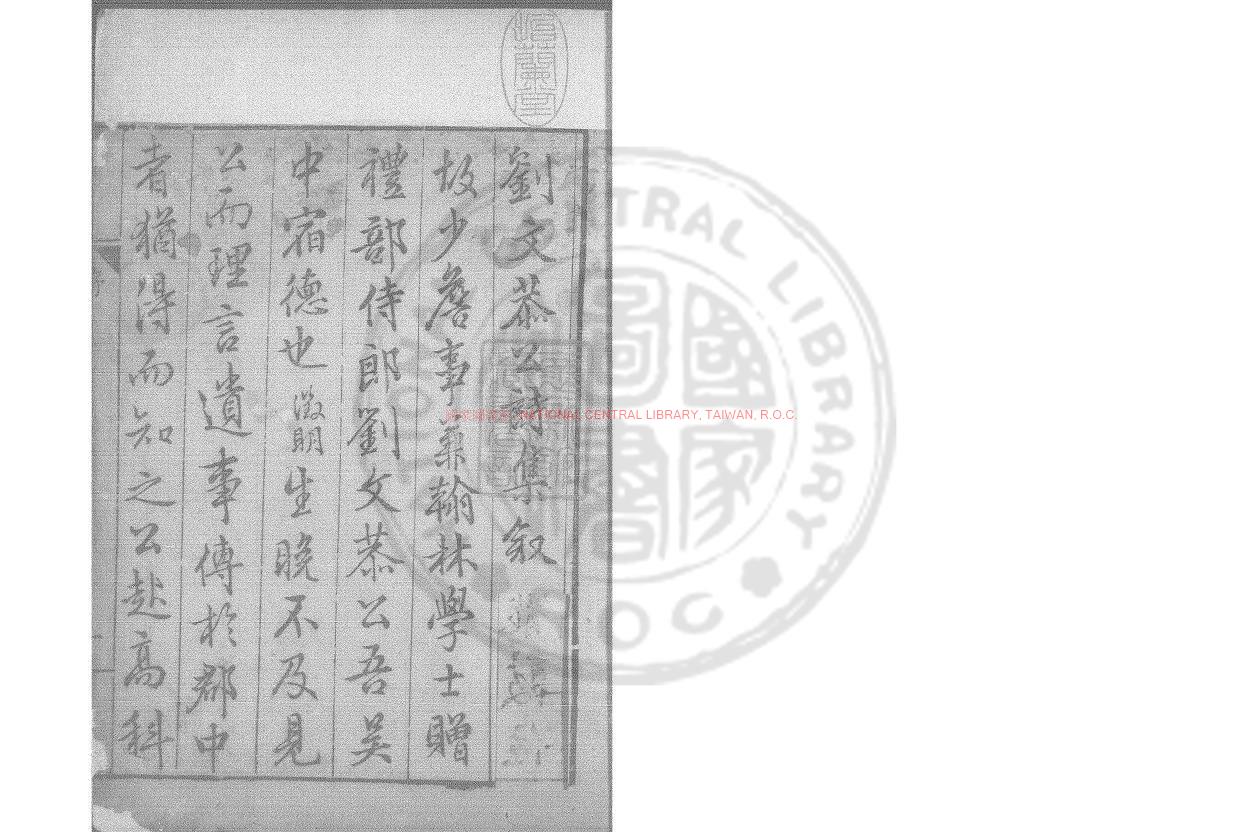 劉文恭公詩集叙
故少詹事兼翰林學士贈
禮部侍郎劉文恭公吾吴
中宿德也徵明生晚不及見
公而理言遺事傳於郡中
者猶得而知之公赴高科
NATIONAL CENTRAL LIBRARY, TAIWAN, R.O.C.
CENTRAL LIBRARY
R.O.C
國家圖書館